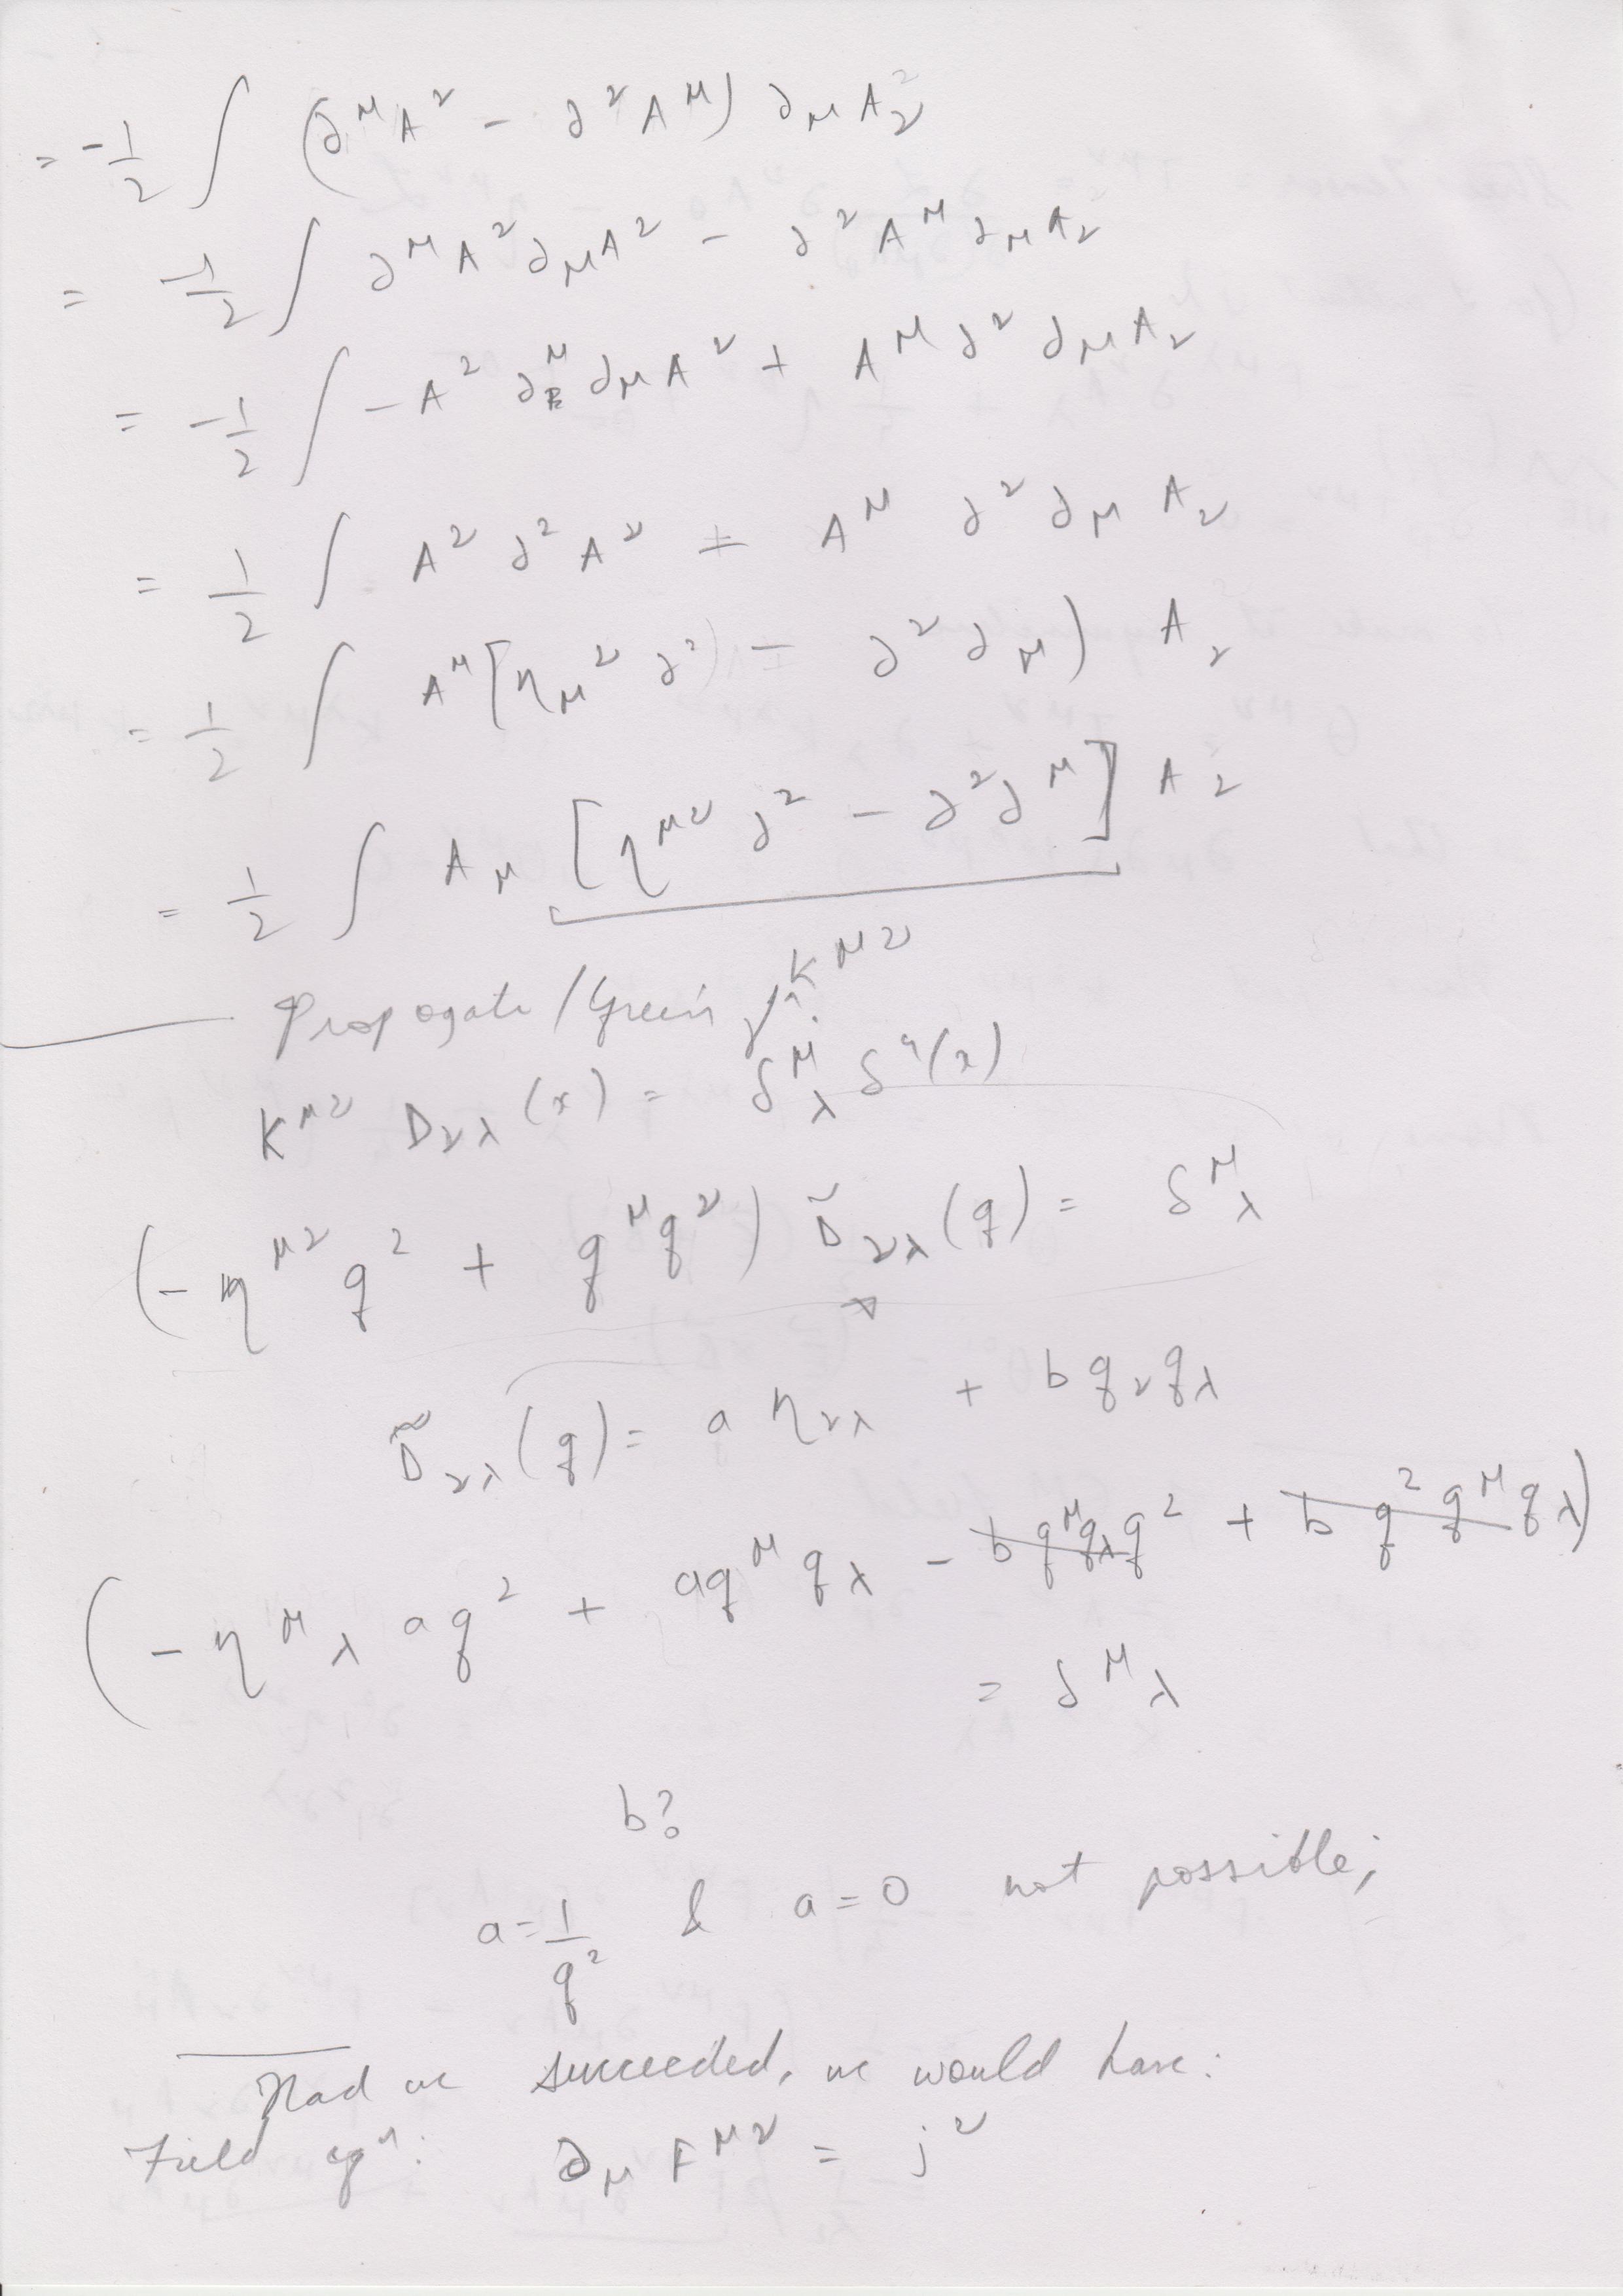 = -1/2 ∫ (∂^μ A^ν - ∂^ν A^μ) ∂_μ A_ν
= -1/2 ∫ ∂^μ A^ν ∂_μ A^ν - ∂^ν A^μ ∂_μ A_ν
= -1/2 ∫ -A^ν ∂^μ ∂_μ A^ν + A^μ ∂^ν ∂_μ A_ν
= 1/2 ∫ A^ν ∂^2 A^ν - A^μ ∂^ν ∂_μ A_ν
= 1/2 ∫ A^μ [η_μ^ν ∂^2) - ∂^ν ∂_μ) A_ν
= 1/2 ∫ A_μ [η^{μν} ∂^2 - ∂^ν ∂^μ] A_ν
K^{μν}
Propogate / Green's f^n.
K^{μν} D_{νλ} (x) = δ^μ_λ δ^4(x)
(-η^{μν} q^2 + q^μ q^ν) D̃_{νλ} (q) = δ^μ_λ
D̃_{νλ} (q) = a η_{νλ} + b q_ν q_λ
(-η^μ_λ a q^2 + a q^μ q_λ - b q^μ q_λ q^2 + b q^2 q^μ q_λ)
= δ^μ_λ
b?
a = 1/q^2 & a = 0 not possible;
Had we succeeded, we would have:
Field eq^n: ∂_μ F^{μν} = j^ν